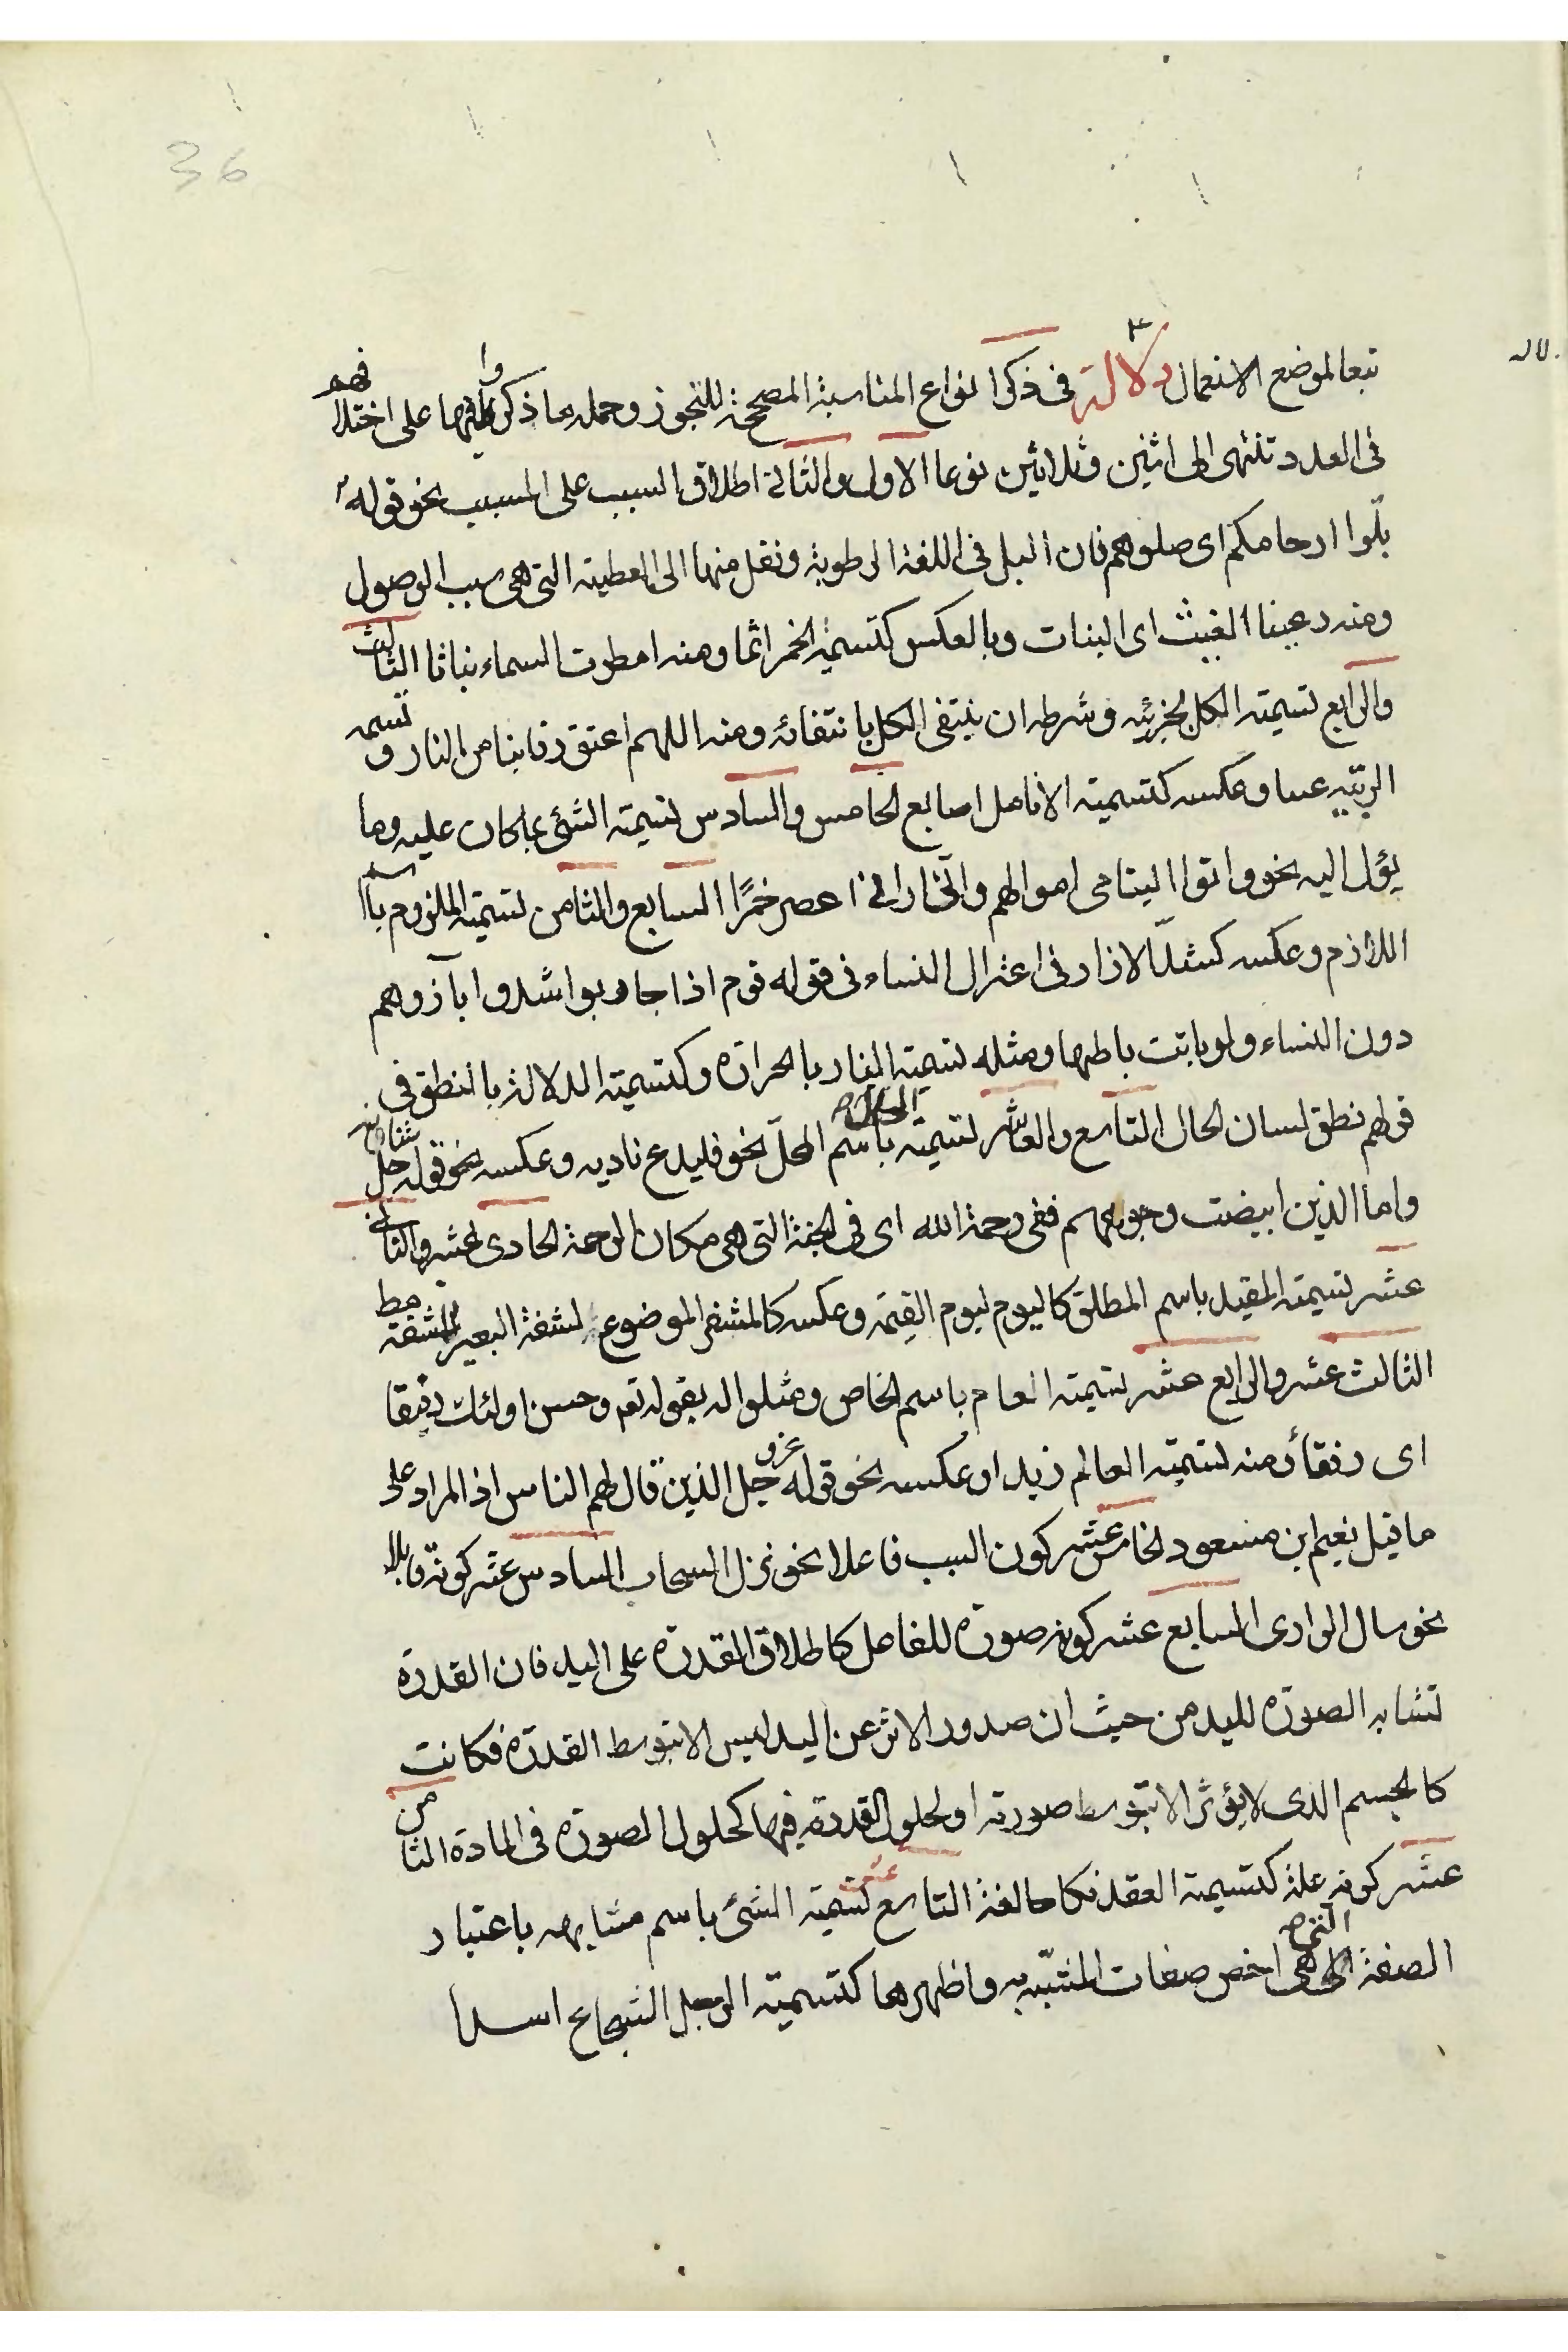 36
تبعا لموضع الاستعمال دلالة في ذكر انواع المناسبة المصححة للتجوز وجملة ما ذكروا فيها على اختلافهم
في العدد تنتهى الى اثنين وثلاثين نوعا الاول والثانى اطلاق السبب على المسبب نحو قوله
بلّوا ارحامكم اى صلوهم فان البل في اللغة الرطوبة ونقل منها الى العطية التى هى سبب الوصول
ومنه رعينا الغيث اى النبات وبالعكس كتسمية الخمر اثما ومنه امطرت السماء نباتا الثالث
والرابع تسمية الكل بجزئه وشرطه ان ينتفى الكل بانتفائه ومنه اللهم اعتق رقابنا من النار و تسمية
الربيّه عينا وعكسه كتسمية الانامل اصابع الخامس والسادس تسمية الشئ بما كان عليه وما
يؤل اليه نحو واتوا اليتامى اموالهم وانى ارانى اعصر خمرًا السابع والثامن تسمية الملزوم باسم
اللازم وعكسه كشد الازار في اعتزال النساء في قوله قوم اذا حاربوا شدوا مآزرهم
دون النساء ولو باتت باطهار ومثله تسمية النار بالحرارة وكتسمية الدلالة بالنطق في
قولهم نطق لسان الحال التاسع والعاشر تسمية الحال باسم المحلّ نحو فليدع ناديه وعكسه نحو قوله جل شانه
واما الذين ابيضت وجوههم ففى رحمة الله اى في الجنة التى هى مكان الرحمة الحادى عشر والثانى
عشر تسمية المقيد باسم المطلق كاليوم ليوم القيمة وعكسه كالمشفر الموضوع لشفة البعير للشفة مط
الثالث عشر والرابع عشر تسمية العام باسم الخاص ومثلوا له بقوله تعه وحسن اولئك رفيقا
اى رفقاء ومنه تسمية العالم زيدا وعكسه نحو قوله عز و جل الذين قال لهم الناس اذ المراد على
ما قيل نعيم ابن مسعود الخامس عشر كون السبب فاعلا نحو نزل السحاب السادس عشر كونه قابلا
نحو سال الوادى السابع عشر كونه صورة للفاعل كاطلاق القدرة على اليد فان القدرة
تشابه الصورة لليد من حيث ان صدور الاثر عن اليد ليس الا بتوسط القدرة فكانت
كالجسم الذى لا يؤثر الا بتوسط صورته او لحلول القدرة فيها كحلول الصورة في المادة الثامن
عشر كونه علة كتسمية العقد نكاحا لغة التاسع عشر تسمية الشئ باسم مشابهه باعتبار
الصفة التى هى اخص صفات المشبّه به واظهرها كتسمية الرجل الشجاع اسدا